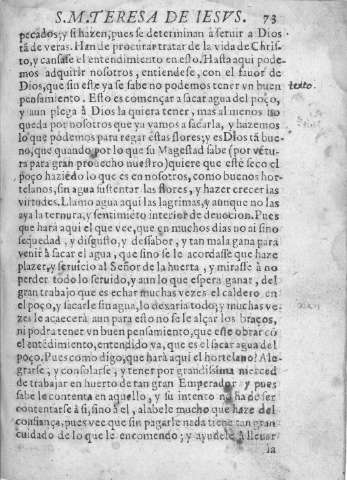 S. M. TERESA DE IESVS. 73
pecados; y si hazen, pues se determinan à seruir a Dios
tã de veras. Han de procurar tratar de la vida de Chris-
to, y cansase el entendimiento en esto. Hasta aqui pode-
mos adquirir nosotros, entiendese, con el fauor de
Dios, que sin este ya se sabe no podemos tener vn buen texto.
pensamiento. Esto es començar a sacar agua del poço,
y aun plega à Dios la quiera tener, mas al menos no
queda por nosotros que ya vamos a sacarla, y hazemos
lo que podemos para regar estas flores; y es Dios tã bue-
no, que quando por lo que su Magestad sabe (por vẽtu-
ra para gran prouecho nuestro) quiere que estè seco el
poço haziẽdo lo que es en nosotros, como buenos hor-
telanos, sin agua sustentar las flores, y hazer crecer las
virtudes. Llamo agua aqui las lagrimas, y aunque no las
aya la ternura, y sentimiẽto interior de deuocion. Pues
que harà aqui el que vee, que en muchos dias no ai sino
sequedad, y disgusto, y dessabor, y tan mala gana para
venir à sacar el agua, que sino se le acordasse que haze
plazer, y seruicio al Señor de la huerta, y mirasse à no
perder todo lo seruido, y aun lo que espera ganar, del
gran trabajo que es echar muchas vezes el caldero en
el poço, y sacarle sin agua, lo dexaria todo; y muchas ve-
zes le acaecerà aun para esto no se le alçar los braços,
ni podra tener vn buen pensamiento, que este obrar cõ
el entẽdimiento, entendido va, que es el sacar agua del
poço. Pues como digo, que harà aqui el hortelano? Ale-
grarse, y consolarse, y tener por grandissima merced
de trabajar en huerto de tan gran Emperador, y pues
sabe le contenta en aquello, y su intento no ha de ser
contentarse à si, sino à el, alabele mucho que haze del
confiança, pues vee que sin pagarle nada tiene tan gran
cuidado de lo que le encomendo; y ayudele à lleuar
la